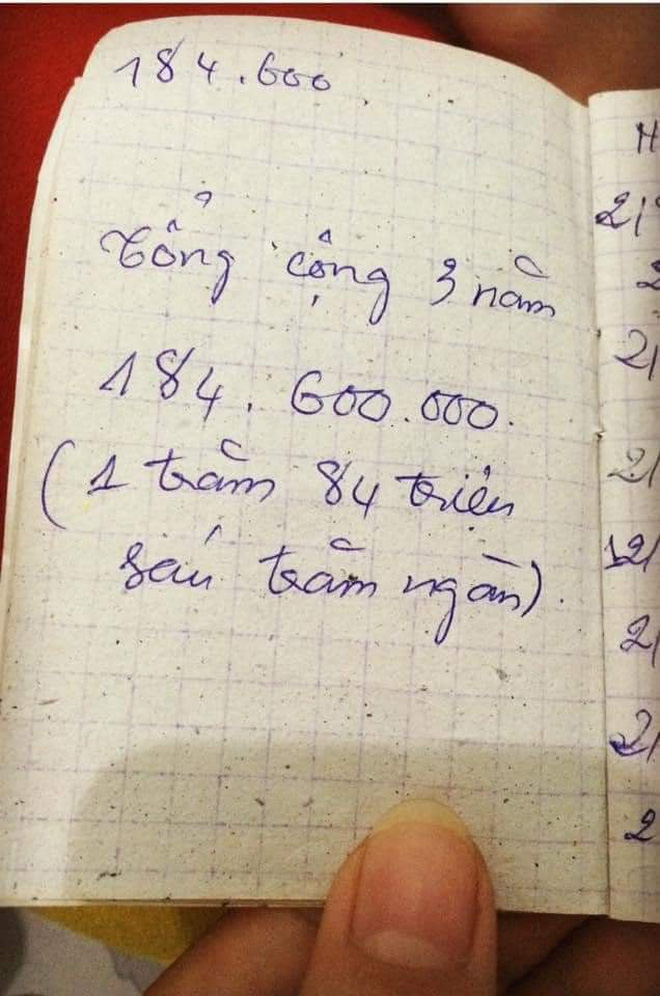 184.600
Tổng cộng 3 năm
184.600.000.
(1 trăm 84 triệu
sáu trăm ngàn).
H
21
2
21
21
121
21
21
2